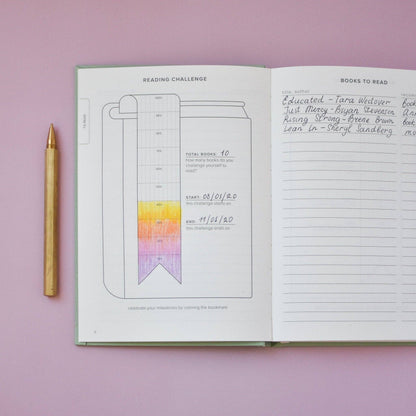 READING CHALLENGE
TOTAL BOOKS: 10
how many books do you
challenge yourself to
read?
START: 08/03/20
this challenge starts on
END: 11/06/20
this challenge ends on
celebrate your milestones by coloring the bookmark
BOOKS TO READ
title, author
Educated - Tara Westover
Just Mercy - Bryan Stevenson
Rising Strong - Brene Brown
Lean In - Sheryl Sandberg